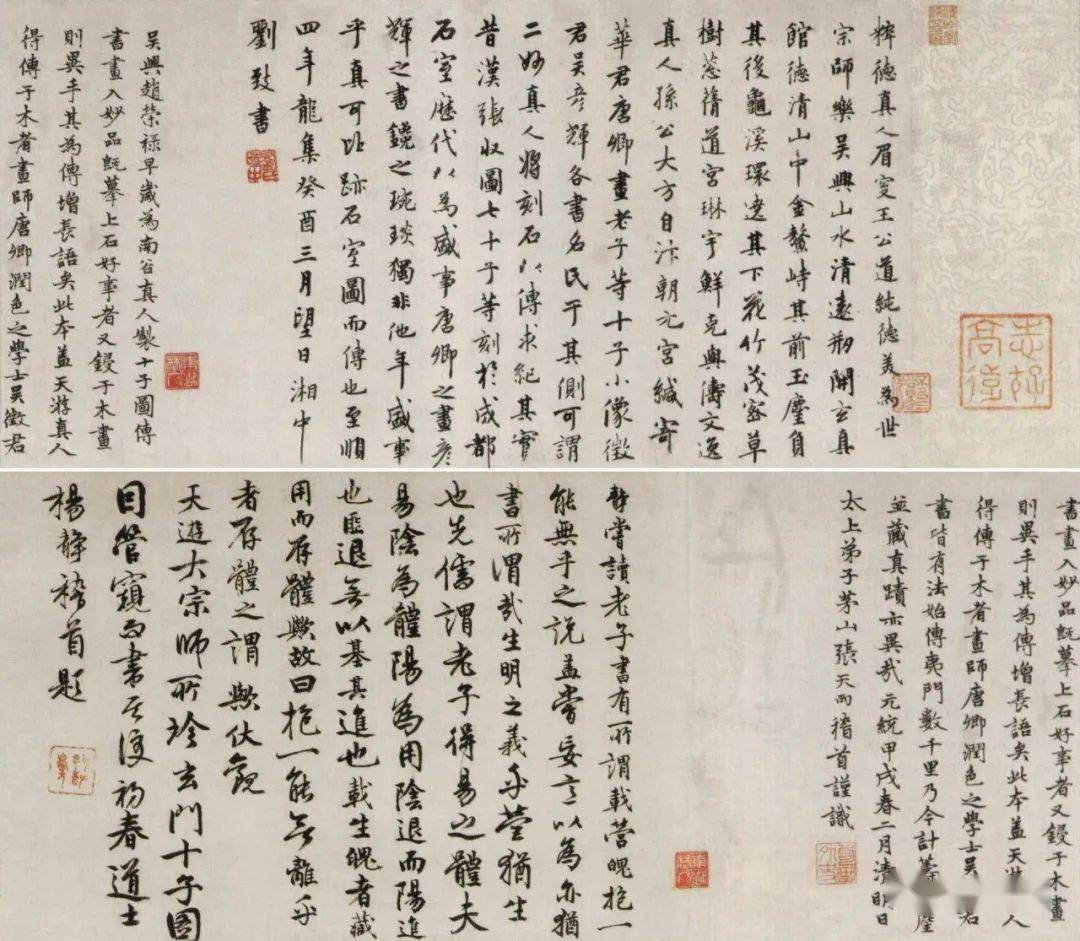 粹德真人眉叟王公道純德美為世
宗師樂吳興山水清遠剏開玄真
館德清山中金鰲峙其前玉麈負
其後龜溪環遶其下花竹茂密草
樹蔥蒨道宮琳宇鮮克與儔文逸
真人孫公大方自汴朝元宮緘寄
華君唐卿畫老子等十子小像徵
君吳彥輝各書名氏于其側可謂
二妙真人將刻石以傳求紀其實
昔漢張收圖七十子等刻於成都
石室歷代以為盛事唐卿之畫彥
輝之書鑱之琬琰獨非他年盛事
乎真可比跡石室圖而傳也至順
四年龍集癸酉三月望日湘中
劉致書
吳興趙榮祿早歲為南谷真人製十子圖傳
書畫入妙品既摹上石好事者又鋟于木畫
則異手其為傳增長語矣此本盖天游真人
得傳于木者畫師唐卿潤色之學士吳徵君
書畫入妙品既摹上石好事者又鋟于木畫
則異手其為傳增長語矣此本盖天 人
得傳于木者畫師唐卿潤色之學士吳 君
書皆有法始傳夷門數千里乃今計籌
並藏真蹟亦異哉元統甲戌春二月清明日
太上弟子茅山張天雨稽首謹識
靜嘗讀老子書有所謂載營魄抱一
能無乎之說盖嘗妄言以為亦猶
書所謂哉生明之義乎營猶生
也先儒謂老子得易之體夫
易陰為體陽為用陰退而陽進
也匪退無以基其進也載生魄者藏
用而存體歟故曰抱一能無離乎
者存體之謂歟伏觀
天遊大宗師所珍玄門十子圖
因管窺而書于後初春道士
楊靜稽首題
志好高遠